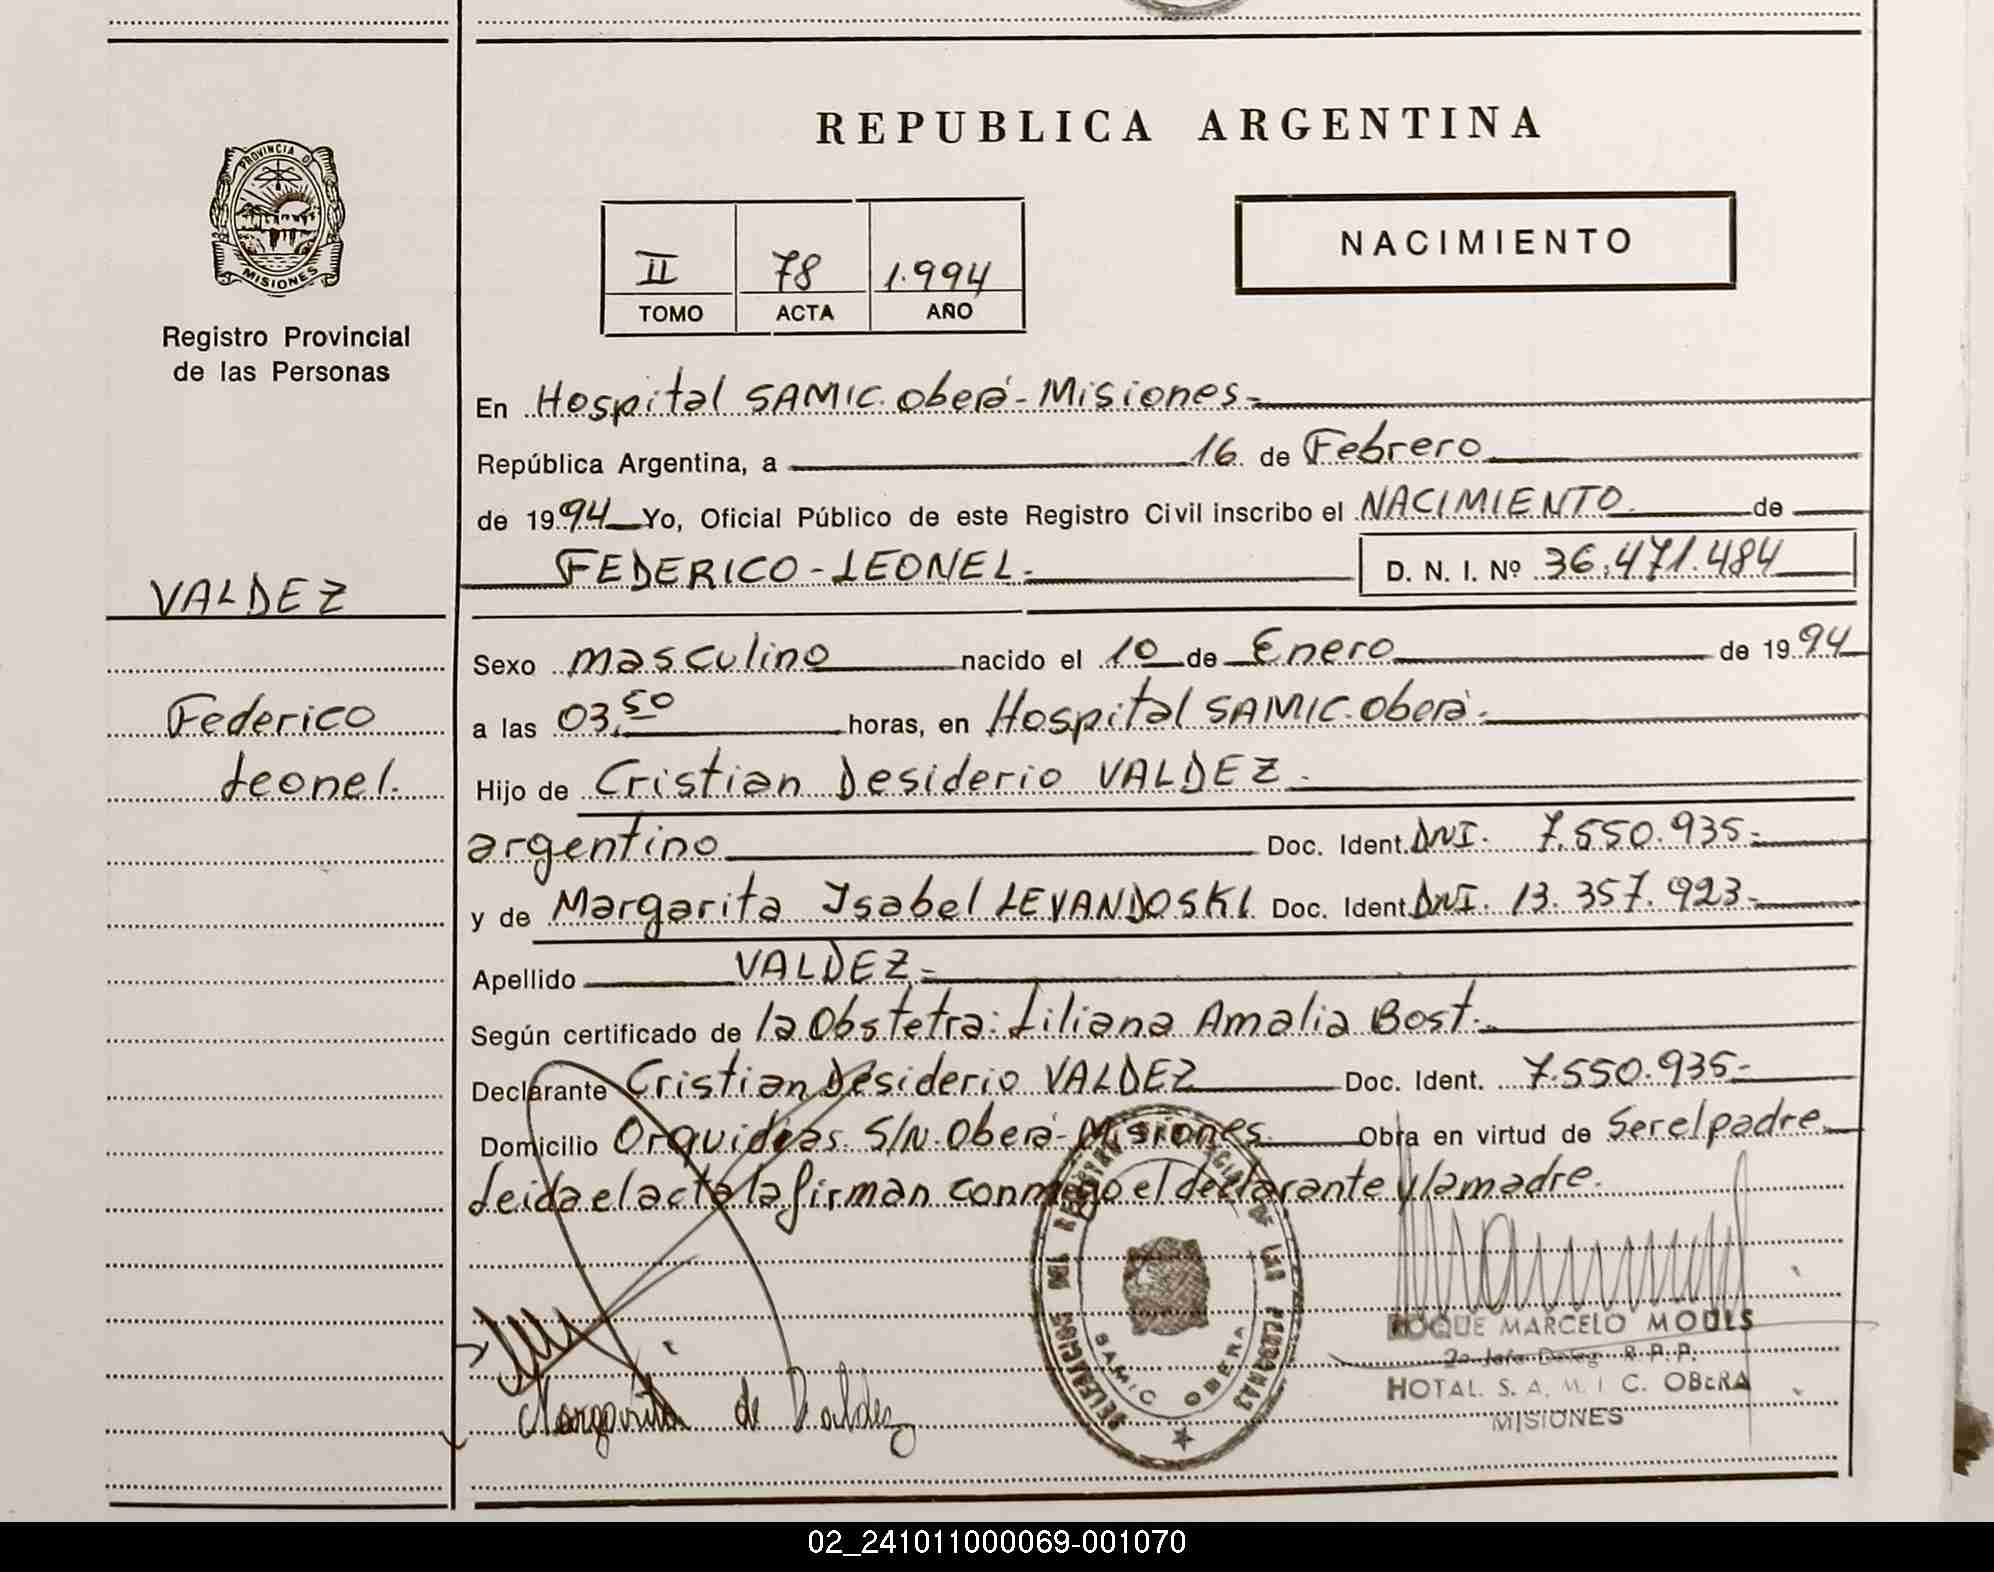 REPUBLICA ARGENTINA
PROVINCIA D
MISIONES
Registro Provincial
de las Personas
II 78 1.994
TOMO ACTA AÑO
NACIMIENTO
En Hospital SAMIC. Oberá - Misiones.-
República Argentina, a 16 de Febrero
de 1994 Yo, Oficial Público de este Registro Civil inscribo el NACIMIENTO de
FEDERICO - LEONEL.- D. N. I. Nº 36.471.484
VALDEZ
Federico
Leonel.
Sexo masculino nacido el 10 de Enero de 1994
a las 03,50 horas, en Hospital SAMIC. Oberá.-
Hijo de Cristian Desiderio VALDEZ.-
argentino Doc. Ident. DNI. 7.550.935.-
y de Margarita Ysabel LEVANDOSKI. Doc. Ident. DNI. 13.357.923.-
Apellido VALDEZ.-
Según certificado de la Obstetra: Liliana Amalia Bost.-
Declarante Cristian Desiderio VALDEZ Doc. Ident. 7.550.935.-
Domicilio Orquideas. S/N. Oberá - Misiones Obra en virtud de Ser el padre
Leida el acta la firman conmigo el declarante y la madre.
Margarita de Valdez
SAMIC OBERA
ROQUE MARCELO MODLS
2o Jefe Deleg R. P. P.
HOTAL. S. A. M. I C. OBERA
MISIONES
02_241011000069-001070